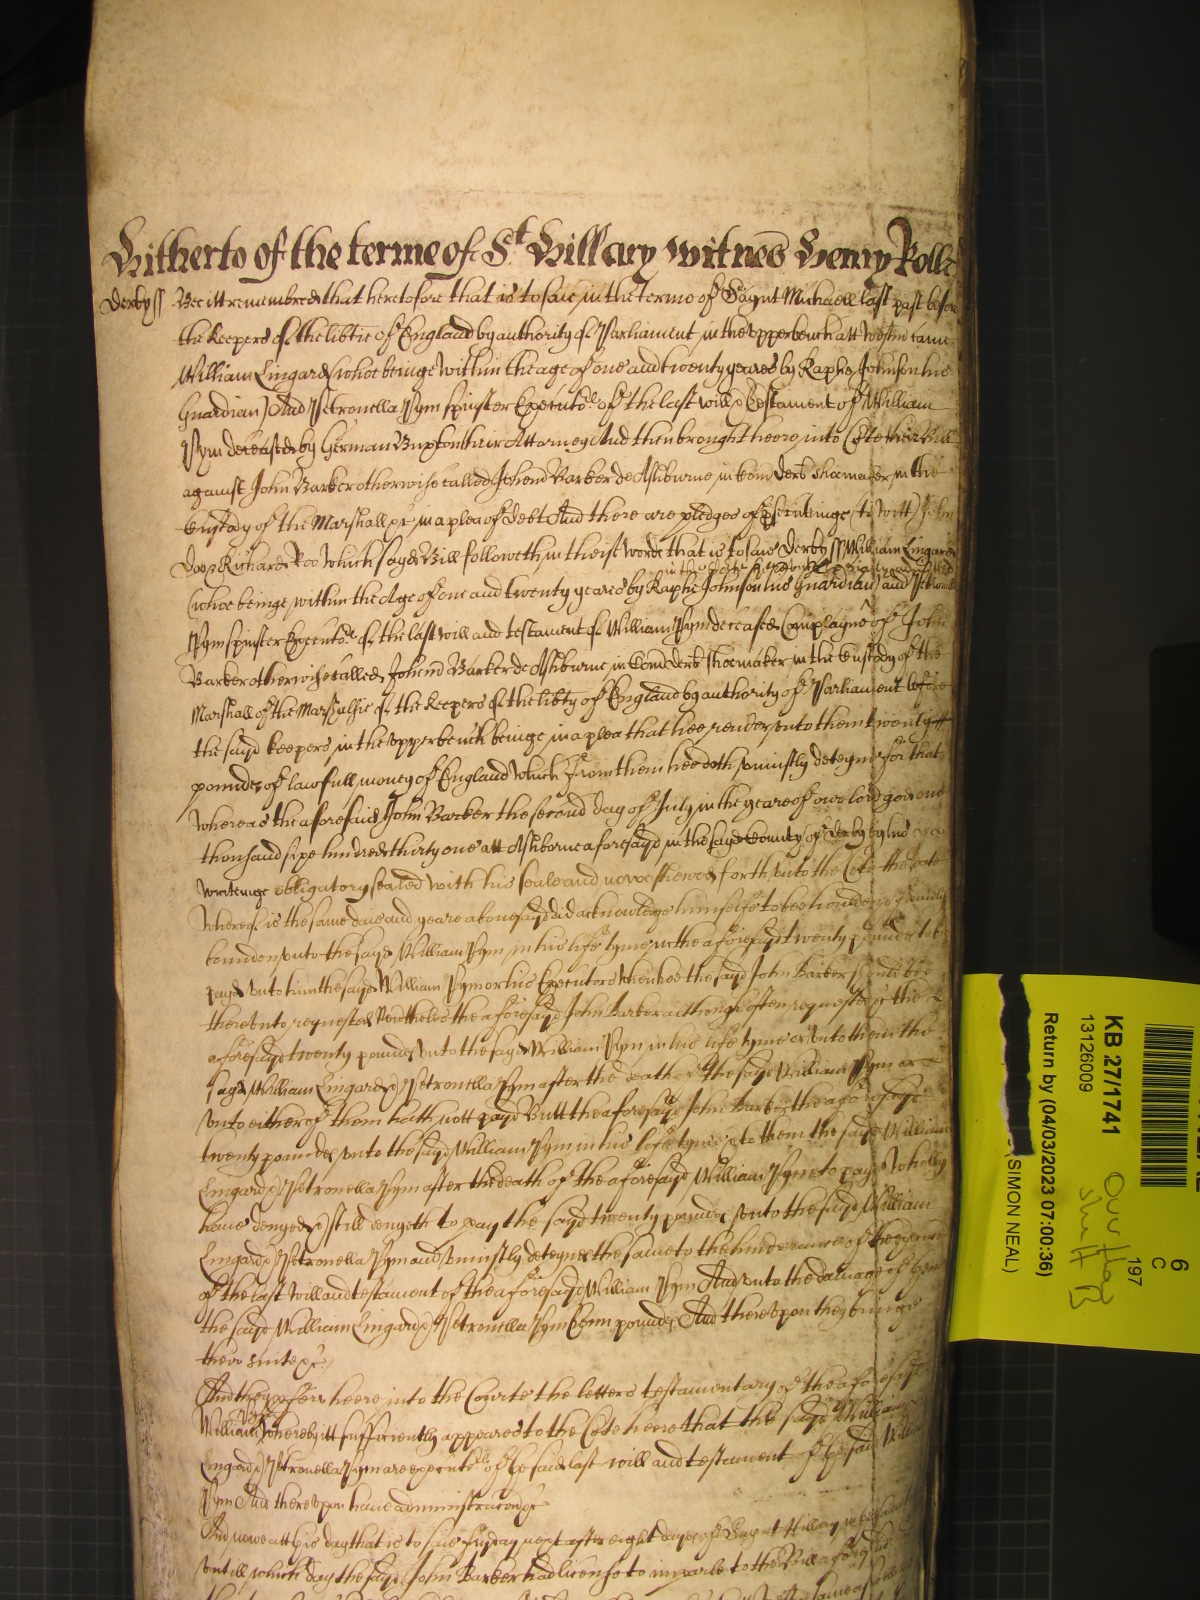 Hitherto of the terme of St Hillary witnes Henry Rolle
Derby ss Bee itt remembred that heretofore that is to saie in the terme of Saynt Michaell last past before
the keepers of the libtie of England by authority of Parliament in the upperbench att Westm came
William Lingard (whoe beinge within the age of one and twenty yeares by Raphe Johnson his
Guardian) And Petronella Pym spinster Executo.rs of the last will & Testament of William
Pym deceased by German Buxton their Attorney And then brought heere into Cote their Bill
against John Barker otherwise called Johem Barker de Ashburne in Com Derb shoemaker in the
Custody of the Marshall &c in a plea of debt And there are pledges of psecutinge (to witt) John
Doo & Richard Roo Which sayd Bill followeth in theise words that is to saie Derby ss William Lingard
(whoe beinge within the Age of one and twenty yeares by Raphe Johnson his Guardian) and Petronella
Pym spinster Executo.rs of the last will and testament of William Pym deceased Complayne of John
Barker otherwise called Johem Barker de Ashburne in Com Derb shoemaker in the Custody of the
Marshall of the Marshalsie of the keepers of the libty of England by authority of Parliament before
the sayd keepers in the upper bench beinge in a plea that hee render unto them twenty
pounds of lawfull money of England which from them hee doth uniustly deteyne for that
whereas the aforesaid John Barker the second day of July in the yeare of our lord god one
thousand sixe hundred thirty one att Ashborne aforesayd in the sayd County of Derby by his
writeinge obligatory sealed with his seale and nowe shewed forth unto the Cote the date
whereof is the same daie and yeare abovesayd did acknowledge himselfe to bee houlden & firmely
bounden unto the sayd William Pym in his life tyme in the aforesayd twenty pounds to be
payd unto him the sayd William Pym or his Executors when hee the sayd John Barker should bee
thereunto requested Nevtheles the aforesayd John Barker although often requested &c the
aforesayd twenty pounds unto the sayd William Pym in his life tyme or unto them the
sayd William Lingard & Petronella Pym after the death of the sayd William Pym or
unto either of them hath nott payd Butt the aforesayd John Barker the aforesayd
twenty pounds unto the sayd William Pym in his life tyme & to them the sayd William
Lingard & Petronella Pym after the death of the aforesayd William Pym to pay wholly
have denyed & still denyeth to pay the sayd twenty pounds unto the sayd William
Lingard & Petronella Pym and uniustly deteynes the same to the hinderance of the
of the last will and testament of the aforesayd William Pym And unto the damage of them
the sayd William Lingard & Petronella Pym Tenn pounds And thereupon they bringe
their suite &c
And they pffer heere into the Courte the letters testamentary of the aforesaid
William Pym whereby itt sufficiently appeares to the Cote heere that the sayd William
Lingard & Petronella Pym are executo.rs of the said last will and testament of the said William
Pym And thereupon have administracon &c
And nowe att this day that is to saie fryday next after eight dayes of Saynt Hillary
untill which day the sayd John Barker had license to imparle to the Bill aforesaid
KB 27/1741
13126009
Return by (04/03/2023 07:00:36)
(SIMON NEAL)
6
C
197